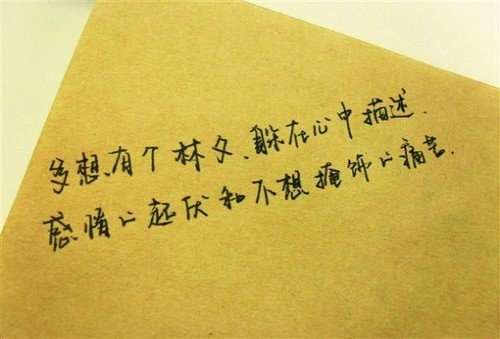 多想有个林夕.躲在心中描述.
感情心起伏和不想掩饰心痛苦.